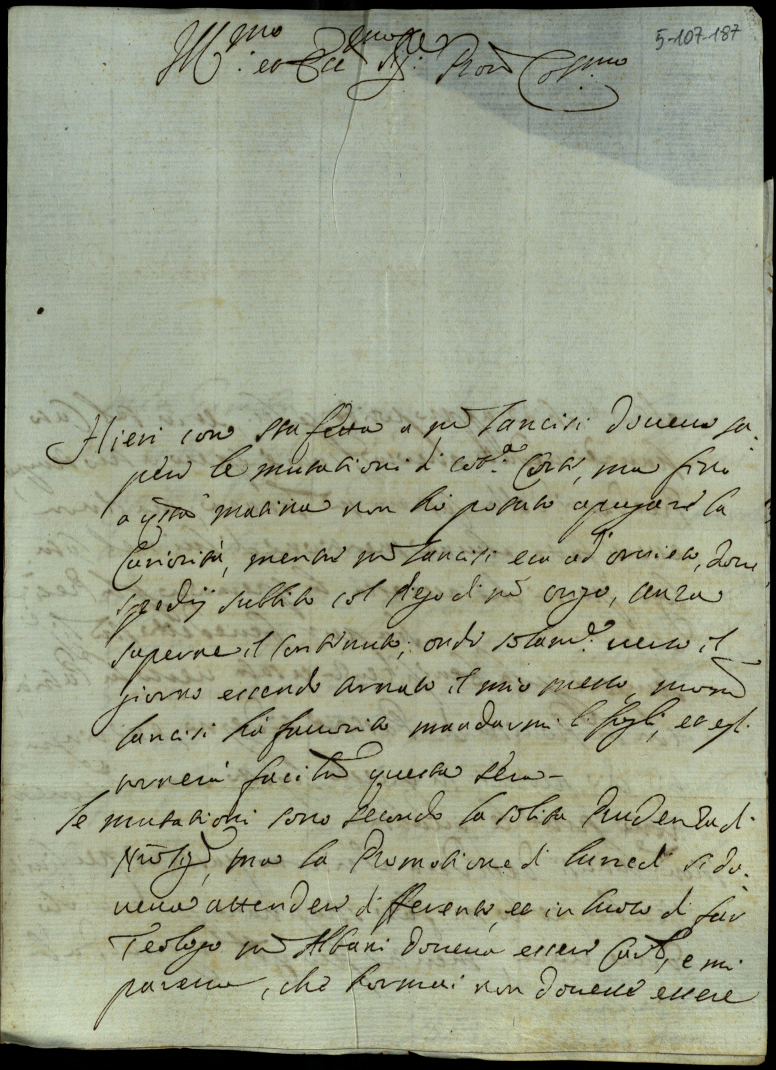 5-107-187
Ill.mo et Ecc.mo Sig.re Pron Col.mo
Hieri con staffetta a m.r Lancisi doveva sa-
pere le mutationi di cot.a Corte, ma fino
a q.sta matina non hò potuto apagare la
Curiosità, mentre m.r Lancisi era ad Orvieto, dove
spedij subbito col piego di m.r, senza
saperne il Contenuto; onde solam.e verso il
giorno essendo arrivato il mio messo, mons.r
Lancisi hà favorito mandarmi li fogli, et egli
tornerà questa sera-
le mutationi sono secondo la solita Prudenza di
N.ro Sig.re, ma la Promotione di lunedì si do-
veva attendere differente, et in luoco di far
Teologo m.r Albani doveva essere Card.le, e mi
pareva, che hormai non dovesse essere